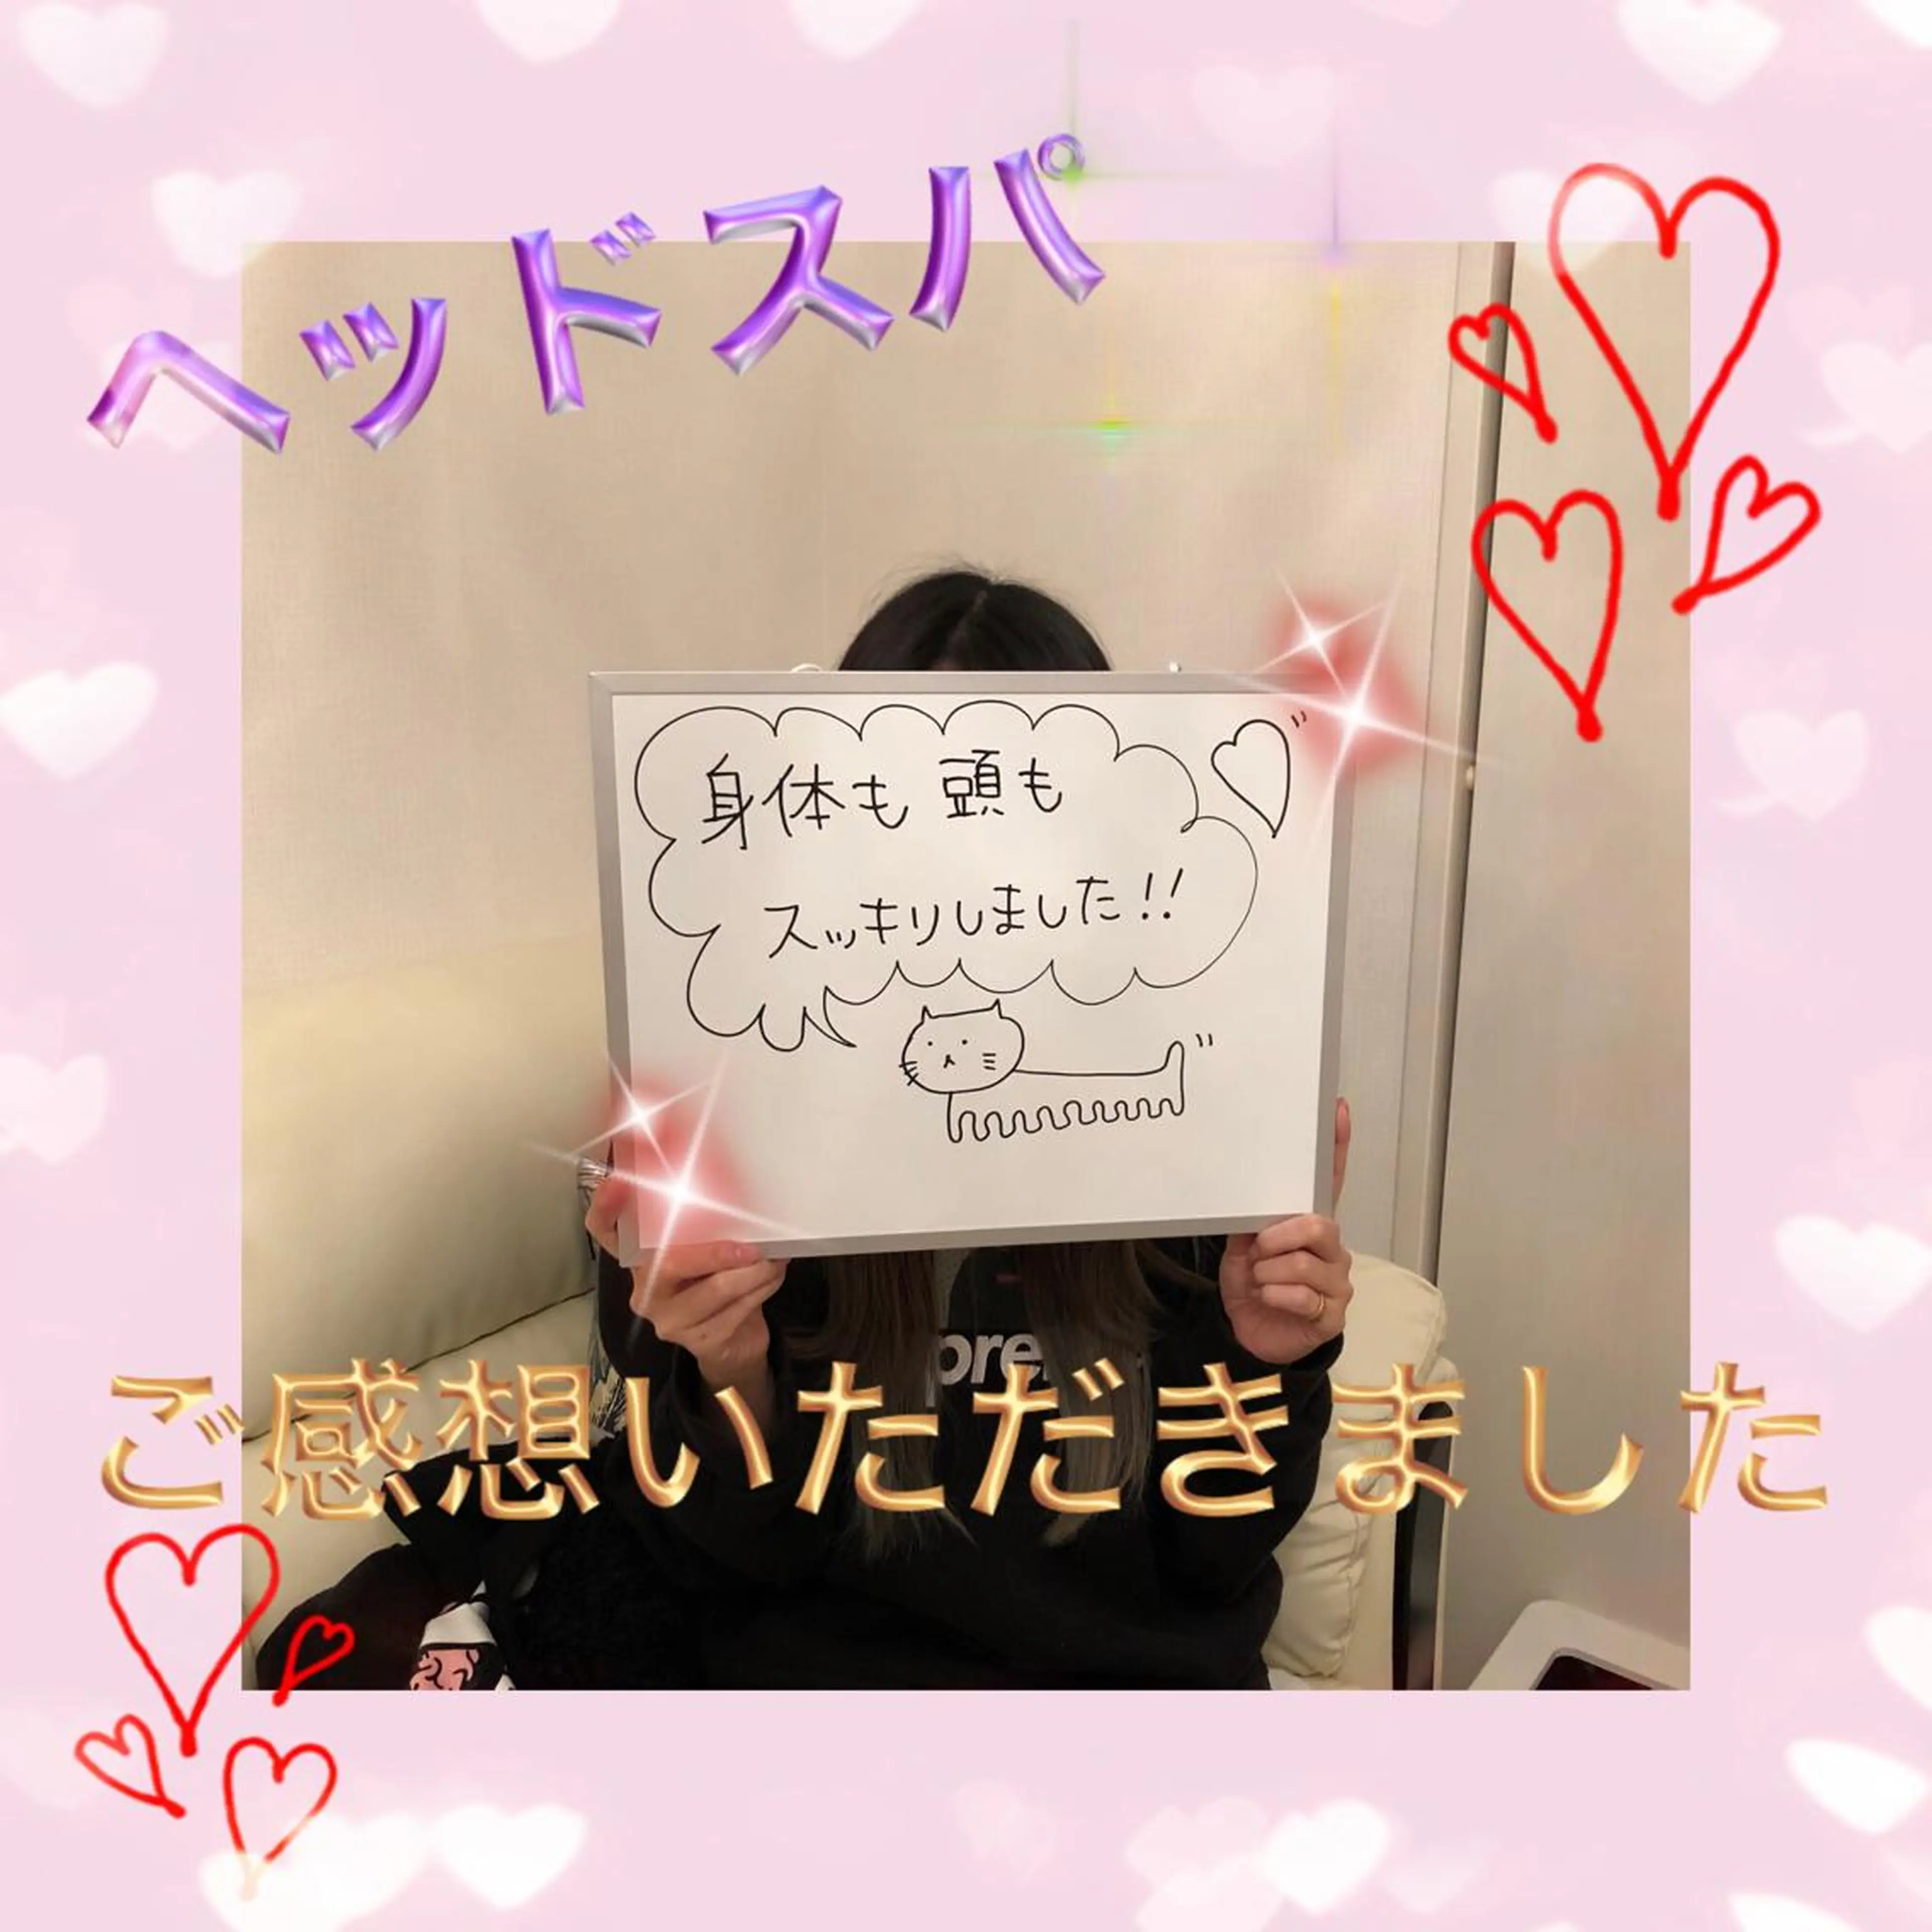 ヘッドスパ
身体も 頭も
スッキリしました!!
pre
ご感想いただきました